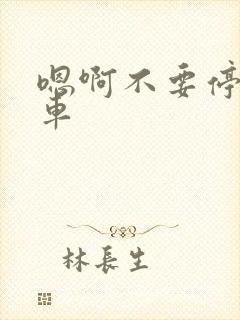 嗯啊不要停
車
林長生